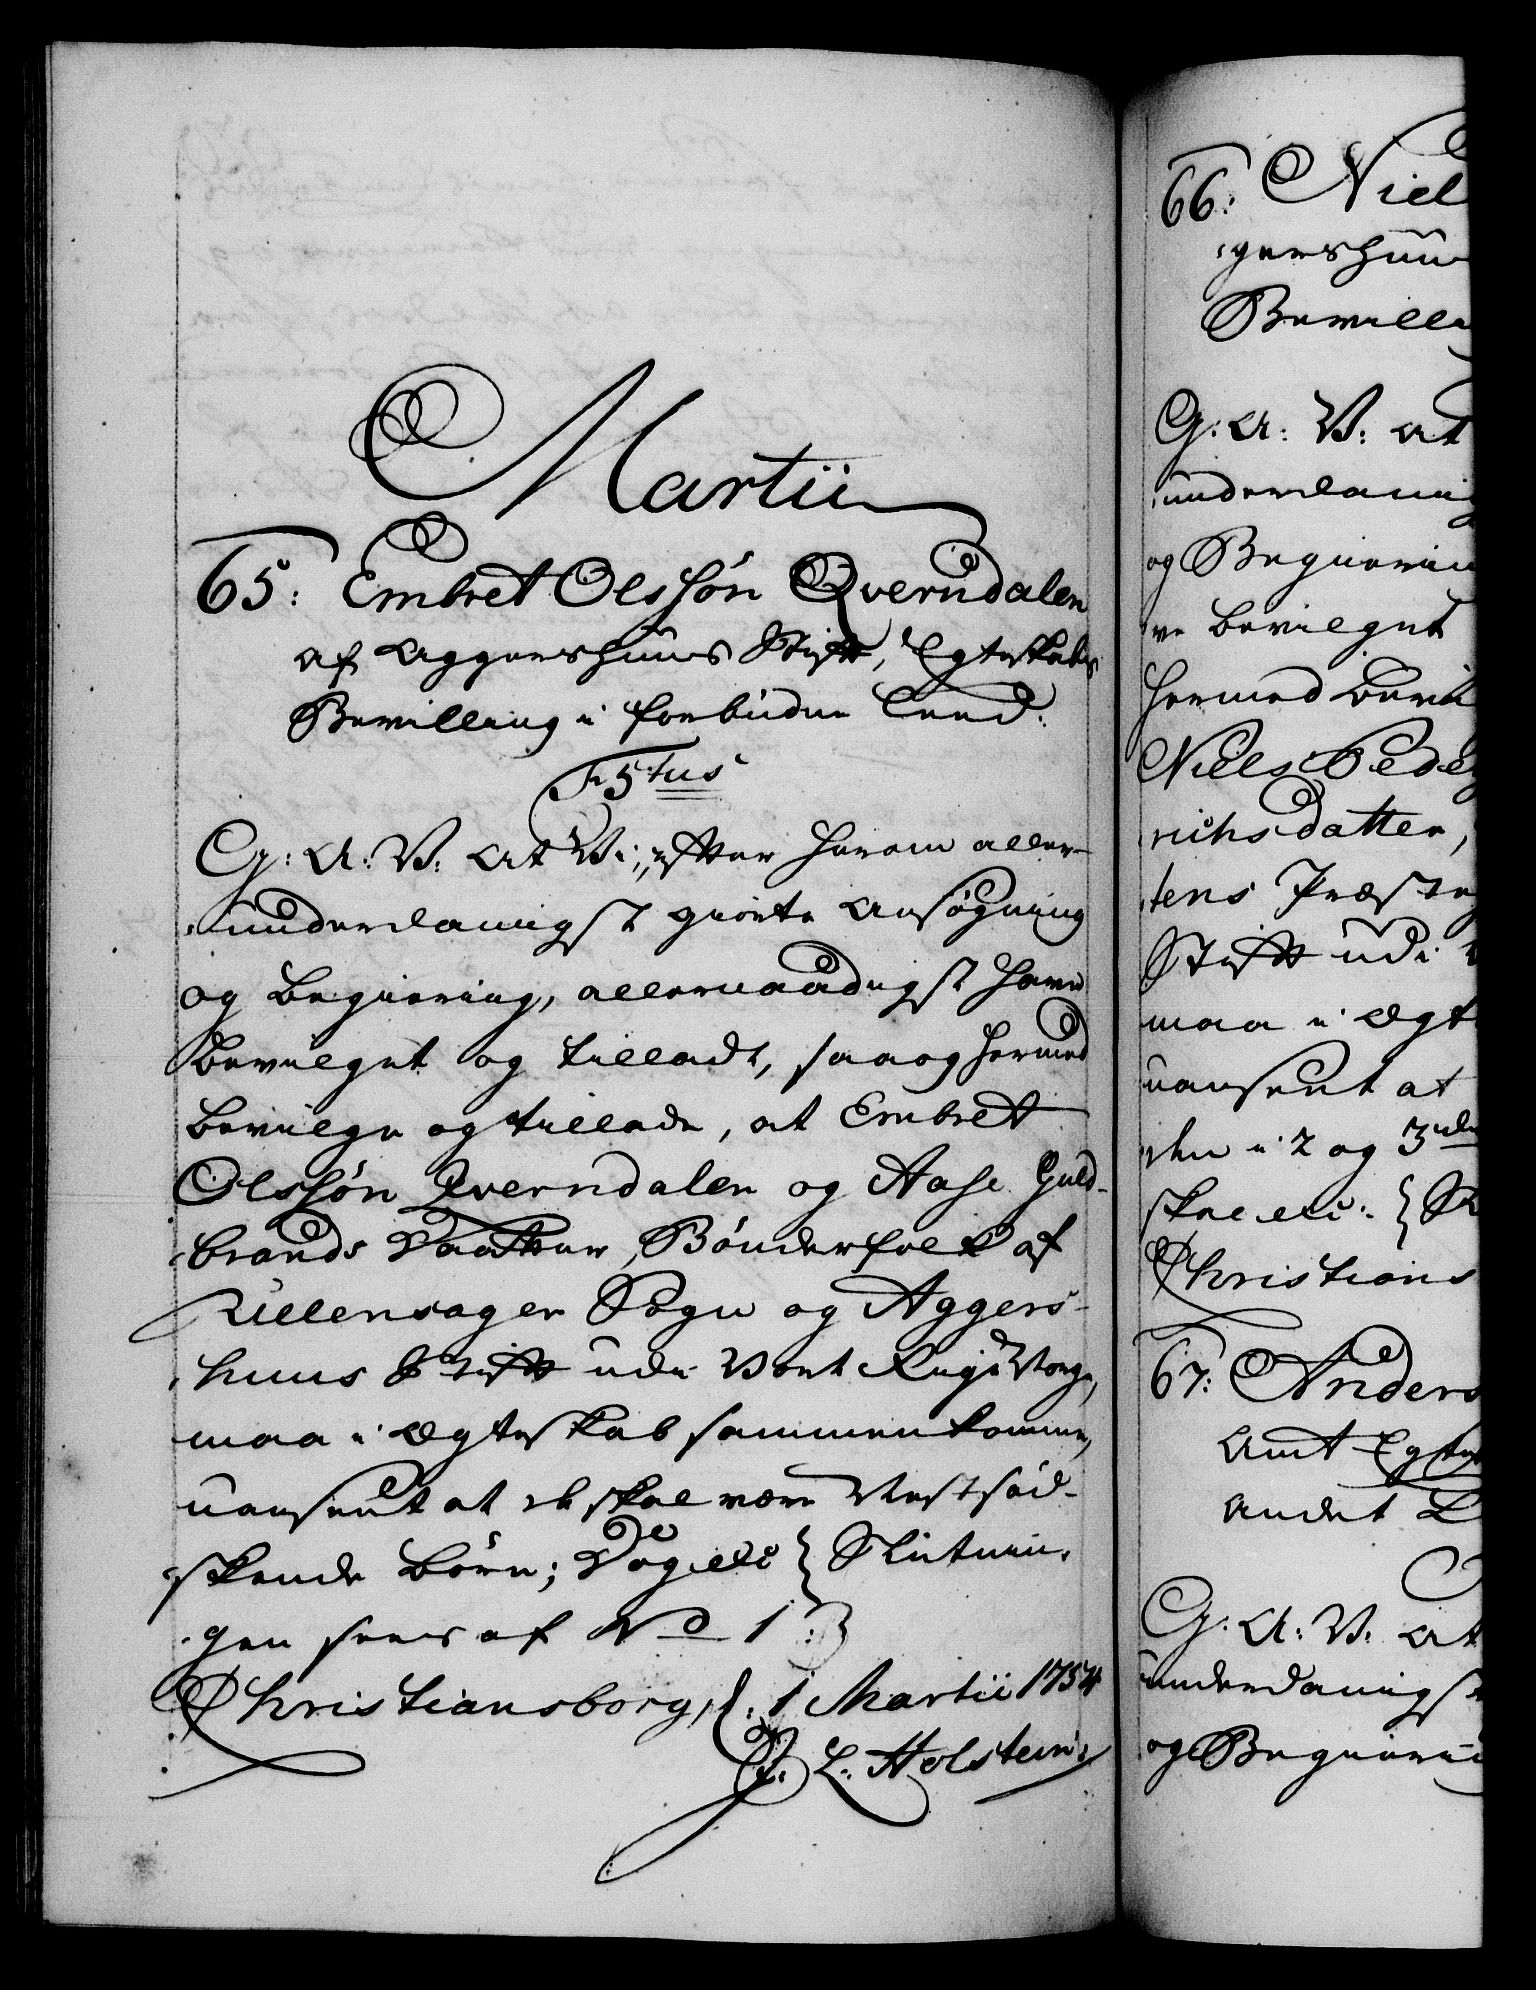 Martii
65: Embret Olssøn Qverndalen
af Aggershuus Stift, Egteskabs
Bevilling i forbudne Leed:
F 5tus
G: A: V: At Vi, efter herom aller-
underdanigst giorte Ansøgning
og Begiering, allernaadigst have
bevilget og tilladt, saa og hermed
bevilge og tillade, at Embret
Olssøn Qverndalen og Aase Guld-
brands Daatter, Bønderfolk af
Ullensager Sogn og Aggers-
huus Stift udi Vort Rige Norge,
maa i Ægteskab sammenkomme,
uanseet at de skal være Næstsød-
skende Børn; Dog etc } Slutnin-
gen sees af No 1:
Christiansborg, d: 1 Martii 1754
J. L. Holstein:
66: Niel
gershuu
Bevilli
G: A: V: At
underdanig
og Begierin
ve bevilget
hermed bevil
Niels Peder
richsdatter,
tens Præste
Stift udi
maa i Ægt
uanseet at
den i 2 og 3die
skal etc: } Sl
Christians
67: Anders
Amt Egte
andet L
G: A: V: At
underdanigs
og Begieri